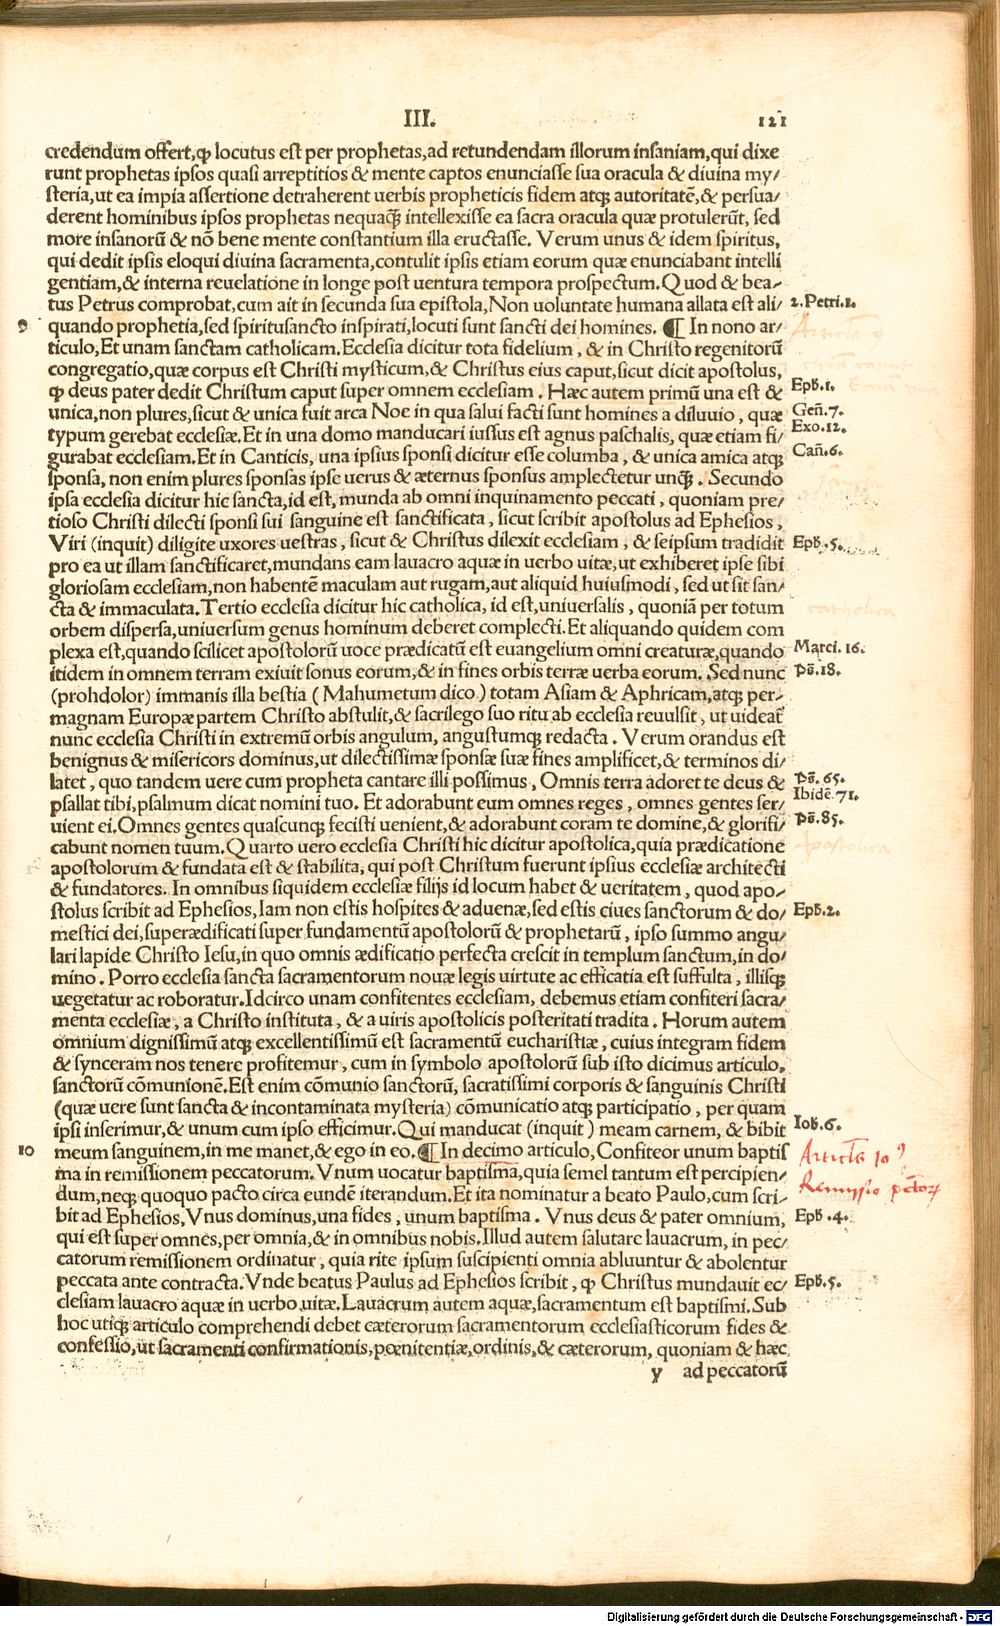 III.
121
credendum offert,ꝙ locutus est per prophetas,ad retundendam illorum insaniam,qui dixe
runt prophetas ipsos quasi arreptitios & mente captos enunciasse sua oracula & diuina my/
steria,ut ea impia assertione detraherent uerbis propheticis fidem atqꝫ autoritatē,& persua/
derent hominibus ipsos prophetas nequaꝗ̃ intellexisse ea sacra oracula quæ protulerūt, sed
more insanorū & nō bene mente constantium illa eructasse. Verum unus & idem spiritus,
qui dedit ipsis eloqui diuina sacramenta,contulit ipsis etiam eorum quæ enunciabant intelli
gentiam,& interna reuelatione in longe post uentura tempora prospectum. Quod & bea/
tus Petrus comprobat,cum ait in secunda sua epistola,Non uoluntate humana allata est ali/
2. Petri.1.
9
quando prophetia,sed spiritusancto inspirati,locuti sunt sancti dei homines. ¶ In nono ar/
ticulo,Et unam sanctam catholicam.Ecclesia dicitur tota fidelium, & in Christo regenitorū
congregatio,quæ corpus est Christi mysticum,& Christus eius caput,sicut dicit apostolus,
ꝙ deus pater dedit Christum caput super omnem ecclesiam. Hæc autem primū una est &
Eph.1.
unica,non plures,sicut & unica fuit arca Noe in qua salui facti sunt homines a diluuio, quæ
Geñ.7.
typum gerebat ecclesiæ.Et in una domo manducari iussus est agnus paschalis, quæ etiam fi/
Exo.12.
gurabat ecclesiam.Et in Canticis, una ipsius sponsi dicitur esse columba, & unica amica atqꝫ
Cañ.6.
sponsa, non enim plures sponsas ipse uerus & æternus sponsus amplectetur unꝗ̃. Secundo
ipsa ecclesia dicitur hic sancta,id est, munda ab omni inquinamento peccati, quoniam pre/
tioso Christi dilecti sponsi sui sanguine est sanctificata, sicut scribit apostolus ad Ephesios,
Viri (inquit) diligite uxores uestras, sicut & Christus dilexit ecclesiam, & seipsum tradidit
Eph.5.
pro ea ut illam sanctificaret,mundans eam lauacro aquæ in uerbo uitæ,ut exhiberet ipse sibi
gloriosam ecclesiam,non habentē maculam aut rugam,aut aliquid huiusmodi, sed ut sit san/
cta & immaculata.Tertio ecclesia dicitur hic catholica, id est,uniuersalis, quoniā per totum
catholica
orbem dispersa,uniuersum genus hominum deberet complecti.Et aliquando quidem com
plexa est,quando scilicet apostolorū uoce prædicatū est euangelium omni creaturæ,quando
Marci.16.
itidem in omnem terram exiuit sonus eorum,& in fines orbis terræ uerba eorum. Sed nunc
Ps̃.18.
(prohdolor) immanis illa bestia (Mahumetum dico) totam Asiam & Aphricam,atqꝫ per/
magnam Europæ partem Christo abstulit,& sacrilego suo ritu ab ecclesia reuulsit, ut uideat̃
nunc ecclesia Christi in extremū orbis angulum, angustumqꝫ redacta. Verum orandus est
benignus & misericors dominus,ut dilectissimæ sponsæ suæ fines amplificet,& terminos di/
latet, quo tandem uere cum propheta cantare illi possimus, Omnis terra adoret te deus &
Ps̃.65.
psallat tibi,psalmum dicat nomini tuo. Et adorabunt eum omnes reges, omnes gentes ser/
Ibidē.71.
uient ei.Omnes gentes quascunqꝫ fecisti uenient,& adorabunt coram te domine,& glorifi/
Ps̃.85.
cabunt nomen tuum.Quarto uero ecclesia Christi hic dicitur apostolica,quia prædicatione
Apostolica
apostolorum & fundata est & stabilita, qui post Christum fuerunt ipsius ecclesiæ architecti
& fundatores. In omnibus siquidem ecclesiæ filijs id locum habet & ueritatem, quod apo/
stolus scribit ad Ephesios,Iam non estis hospites & aduenæ,sed estis ciues sanctorum & do/
Eph.2.
mestici dei,superædificati super fundamentū apostolorū & prophetarū, ipso summo angu/
lari lapide Christo Iesu,in quo omnis ædificatio perfecta crescit in templum sanctum,in do/
mino. Porro ecclesia sancta sacramentorum nouæ legis uirtute ac efficatia est suffulta, illisqꝫ
uegetatur ac roboratur.Idcirco unam confitentes ecclesiam, debemus etiam confiteri sacra/
menta ecclesiæ, a Christo instituta, & a uiris apostolicis posteritati tradita. Horum autem
omnium dignissimū atqꝫ excellentissimū est sacramentū eucharistiæ, cuius integram fidem
& synceram nos tenere profitemur, cum in symbolo apostolorū sub isto dicimus articulo,
sanctorū cōmunionē.Est enim cōmunio sanctorū, sacratissimi corporis & sanguinis Christi
(quæ uere sunt sancta & incontaminata mysteria) cōmunicatio atqꝫ participatio, per quam
ipsi inserimur,& unum cum ipso efficimur.Qui manducat (inquit) meam carnem, & bibit
Ioh.6.
10
meum sanguinem,in me manet,& ego in eo.¶ In decimo articulo,Confiteor unum baptis
ma in remissionem peccatorum. Vnum uocatur baptisma,quia semel tantum est percipien/
dum,neqꝫ quoquo pacto circa eundē iterandum.Et ita nominatur a beato Paulo,cum scri/
bit ad Ephesios,Vnus dominus,una fides, unum baptisma. Vnus deus & pater omnium,
Eph.4.
qui est super omnes,per omnia,& in omnibus nobis.Illud autem salutare lauacrum, in pec/
catorum remissionem ordinatur, quia rite ipsum suscipienti omnia abluuntur & abolentur
peccata ante contracta.Vnde beatus Paulus ad Ephesios scribit, ꝙ Christus mundauit ec/
Eph.5.
clesiam lauacro aquæ in uerbo uitæ.Lauacrum autem aquæ,sacramentum est baptismi.Sub
hoc utiqꝫ articulo comprehendi debet cæterorum sacramentorum ecclesiasticorum fides &
confessio,ut sacramenti confirmationis,pœnitentiæ,ordinis,& cæterorum, quoniam & hæc
y ad peccatorū
Digitalisierung gefördert durch die Deutsche Forschungsgemeinschaft - DFG